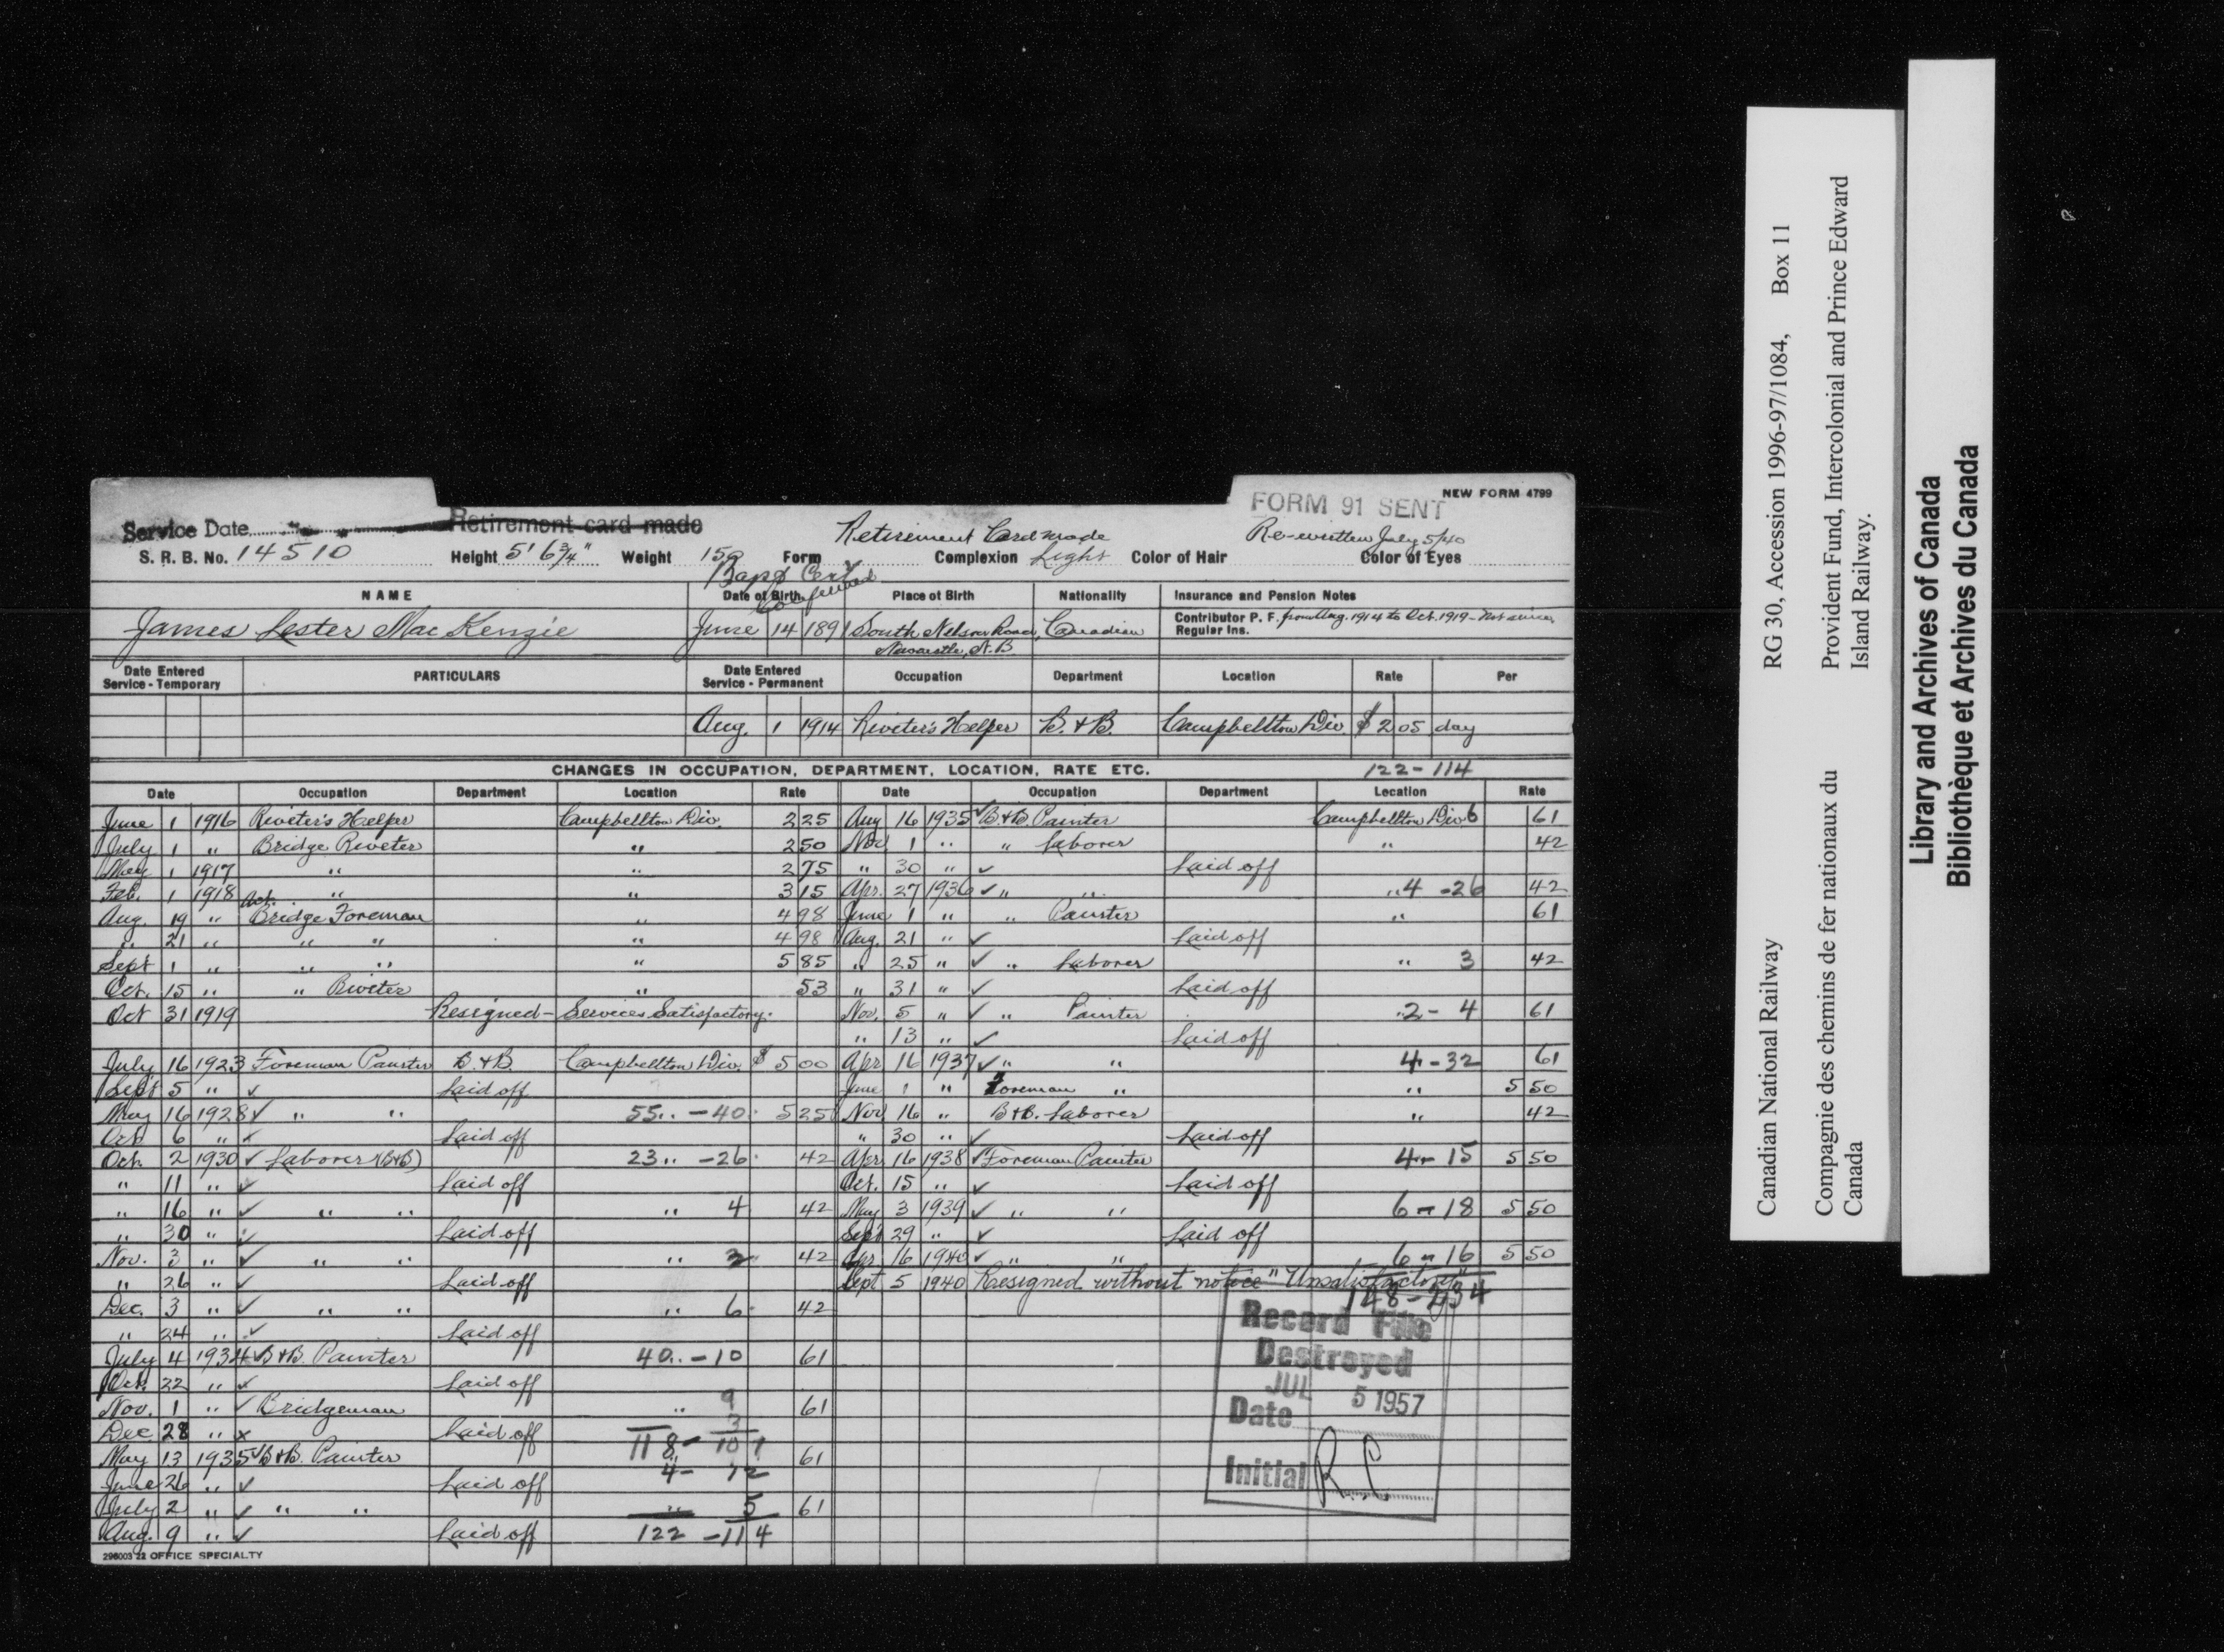 FORM 91 SENT
NEW FORM 4799
Service Date
Retirement card made
Retirement Card made
Re-written July 5/40
S. R. B. No. 14510 Height 5' 6 3/4" Weight 159 Form Complexion Light Color of Hair Color of Eyes
Bapt Cert
NAME Date of Birth Place of Birth Nationality Insurance and Pension Notes
James Lester MacKenzie June 14 1891 South Nelson Road, Canadian Contributor P. F. from Aug. 1914 to Oct. 1919 - Not since
Newcastle, N.B. Regular Ins.
Date Entered Service - Temporary PARTICULARS Date Entered Service - Permanent Occupation Department Location Rate Per
Aug. 1 1914 Riveter's Helper B. & B. Campbellton Div. $ 2 05 day
CHANGES IN OCCUPATION, DEPARTMENT, LOCATION, RATE ETC. 122-114
Date Occupation Department Location Rate Date Occupation Department Location Rate
June 1 1916 Riveter's Helper Campbellton Div. 2 25 Aug 16 1935 ✓ B&B. Painter Campbellton Div 6 61
July 1 " Bridge Riveter " 2 50 Nov 1 " " Laborer " 42
May 1 1917 " " 2 75 " 30 " ✓ Laid off
Feb. 1 1918 " " 3 15 Apr. 27 1936 ✓ " " " 4 - 26 42
Aug. 19 " Act. Bridge Foreman " 4 98 June 1 " " Painter " 61
" 21 " " " " 4 98 Aug. 21 " ✓ Laid off
Sept 1 " " " " 5 85 " 25 " ✓ " Laborer " 3 42
Oct. 15 " " Riveter " 53 " 31 " ✓ Laid off
Oct 31 1919 Resigned - Services Satisfactory. Nov. 5 " ✓ " Painter " 2 - 4 61
" 13 " ✓ Laid off
July 16 1923 Foreman Painter B. & B. Campbellton Div. $ 5 00 Apr 16 1937 ✓ " " 4 - 32 61
Sept 5 " ✓ Laid off June 1 " Foreman " " 5 50
May 16 1928 ✓ " " 55 " - 40 5 25 Nov 16 " B&B. Laborer " 42
Oct 6 " ✓ Laid off " 30 " ✓ Laid off
Oct. 2 1930 ✓ Laborer (B&B) 23 " - 26 42 Apr 16 1938 ✓ Foreman Painter 4 - 15 5 50
" 11 " ✓ Laid off Oct. 15 " ✓ Laid off
" 16 " ✓ " " " 4 42 May 3 1939 ✓ " " 6 - 18 5 50
" 30 " ✓ Laid off Sept 29 " ✓ Laid off
Nov. 3 " ✓ " " " 3 42 Apr. 16 1940 ✓ " " 6 - 16 5 50
" 26 " ✓ Laid off Sept 5 1940 Resigned without notice "Unsatisfactory"
Dec. 3 " ✓ " " " 6 42 148 - 234
" 24 " ✓ Laid off
July 4 1934 ✓ B&B. Painter 40 " - 10 61
Oct. 22 " ✓ Laid off
Nov. 1 " ✓ Bridgeman " 9 61
Dec 28 " x Laid off 3
118 - 10
May 13 1935 ✓ B&B. Painter 4 - 12 61
June 26 " ✓ Laid off
July 2 " ✓ " " " 5 61
Aug. 9 " ✓ Laid off 122 - 114
Record File
Destroyed
JUL 5 1957
Date
Initial R.C.
296003 22 OFFICE SPECIALTY
Canadian National Railway RG 30, Accession 1996-97/1084, Box 11
Compagnie des chemins de fer nationaux du Canada
Provident Fund, Intercolonial and Prince Edward Island Railway.
Library and Archives of Canada
Bibliothèque et Archives du Canada